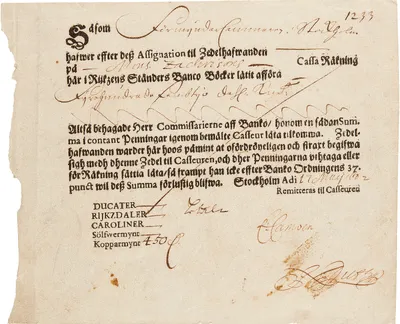 1233
Såsom Förmynder Cammaren i Stockholm
hafwer effter deß Assignation til Zedelhafwanden
på Cassa Räkning
här i Rijkzens Ständers Banco Böcker låtit afföra
Fyrahundrade Femtijo dal.
Altså behagade Herr Commissarierne aff Banko/ honom en sådan Sum-
ma i contant Penningar igenom bemälte Casseur låta tilkomma. Zedel-
hafwanden warder här hoos påmint at ofördröyeligen och straxt begifwa
sigh medh dhenne Zedel til Casseuren/och dher Penningarna vthtaga eller
för Räkning sättia låta/så frampt han icke effter Banko Ordningens 37.
punct wil deß Summa förlustig blifwa. Stockholm Adi 17 Maij
Remitteras til Casseuren
DUCATER
RIJKZDALER
CAROLINER
Sölfwermynt
Kopparmynt 450